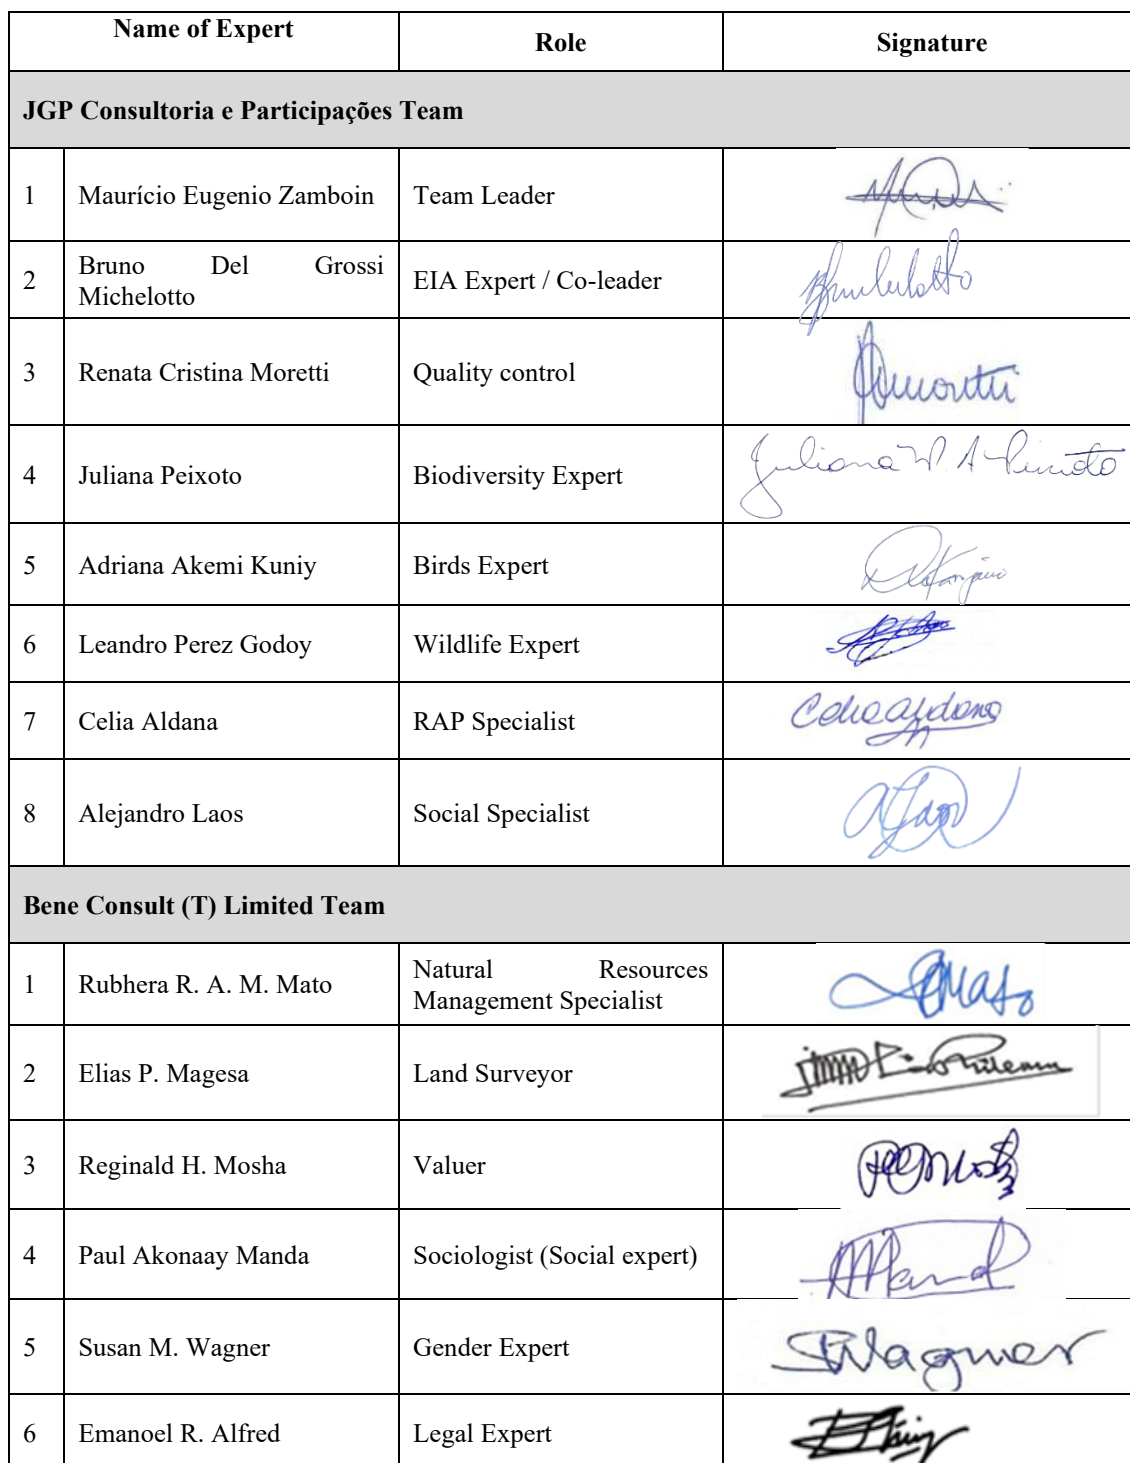 Name of Expert Role Signature
JGP Consultoria e Participações Team
1 Maurício Eugenio Zamboin Team Leader
2 Bruno Del Grossi
Michelotto EIA Expert / Co-leader
3 Renata Cristina Moretti Quality control
4 Juliana Peixoto Biodiversity Expert Juliana
5 Adriana Akemi Kuniy Birds Expert
6 Leandro Perez Godoy Wildlife Expert
7 Celia Aldana RAP Specialist Celia Aldana
8 Alejandro Laos Social Specialist
Bene Consult (T) Limited Team
1 Rubhera R. A. M. Mato Natural Resources
Management Specialist
2 Elias P. Magesa Land Surveyor
3 Reginald H. Mosha Valuer
4 Paul Akonaay Manda Sociologist (Social expert)
5 Susan M. Wagner Gender Expert SWagner
6 Emanoel R. Alfred Legal Expert